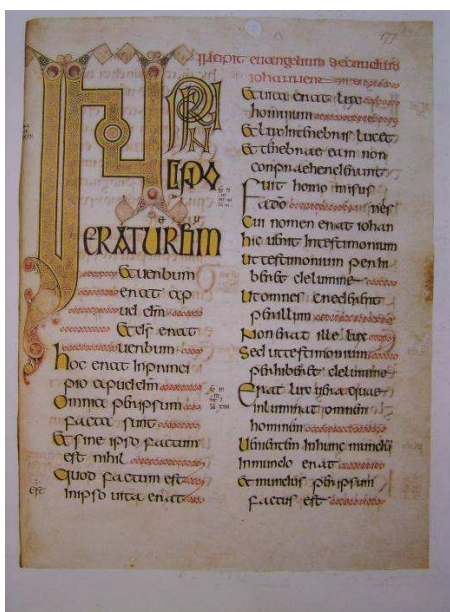 177
Incipit euangelium secundum
iohannem
IN PRIN
CIPIO
ERAT UERBUM
Et uerbum
erat ap
ud dm
Et ds erat
uerbum
hoc erat in princi
pio apud dm
Omnia per ipsum
facta sunt
Et sine ipso factum
est nihil
Quod factum est
in ipso uita erat
Et uita erat lux
hominum
Et lux in tenebris lucet
Et tenebrae eam non
conpraehenderunt
Fuit homo misus
a do nes
Cui nomen erat iohan
hic uenit in testimonium
Ut testimonium perhi
beret de lumine
Ut omnes crederent
per illum
Non erat ille lux
Sed ut testimonium
perhiberet de lumine
Erat lux uera quae
inluminat omnem
hominem
Uenientem in hunc mundū
In mundo erat
Et mundus per ipsum
factus est